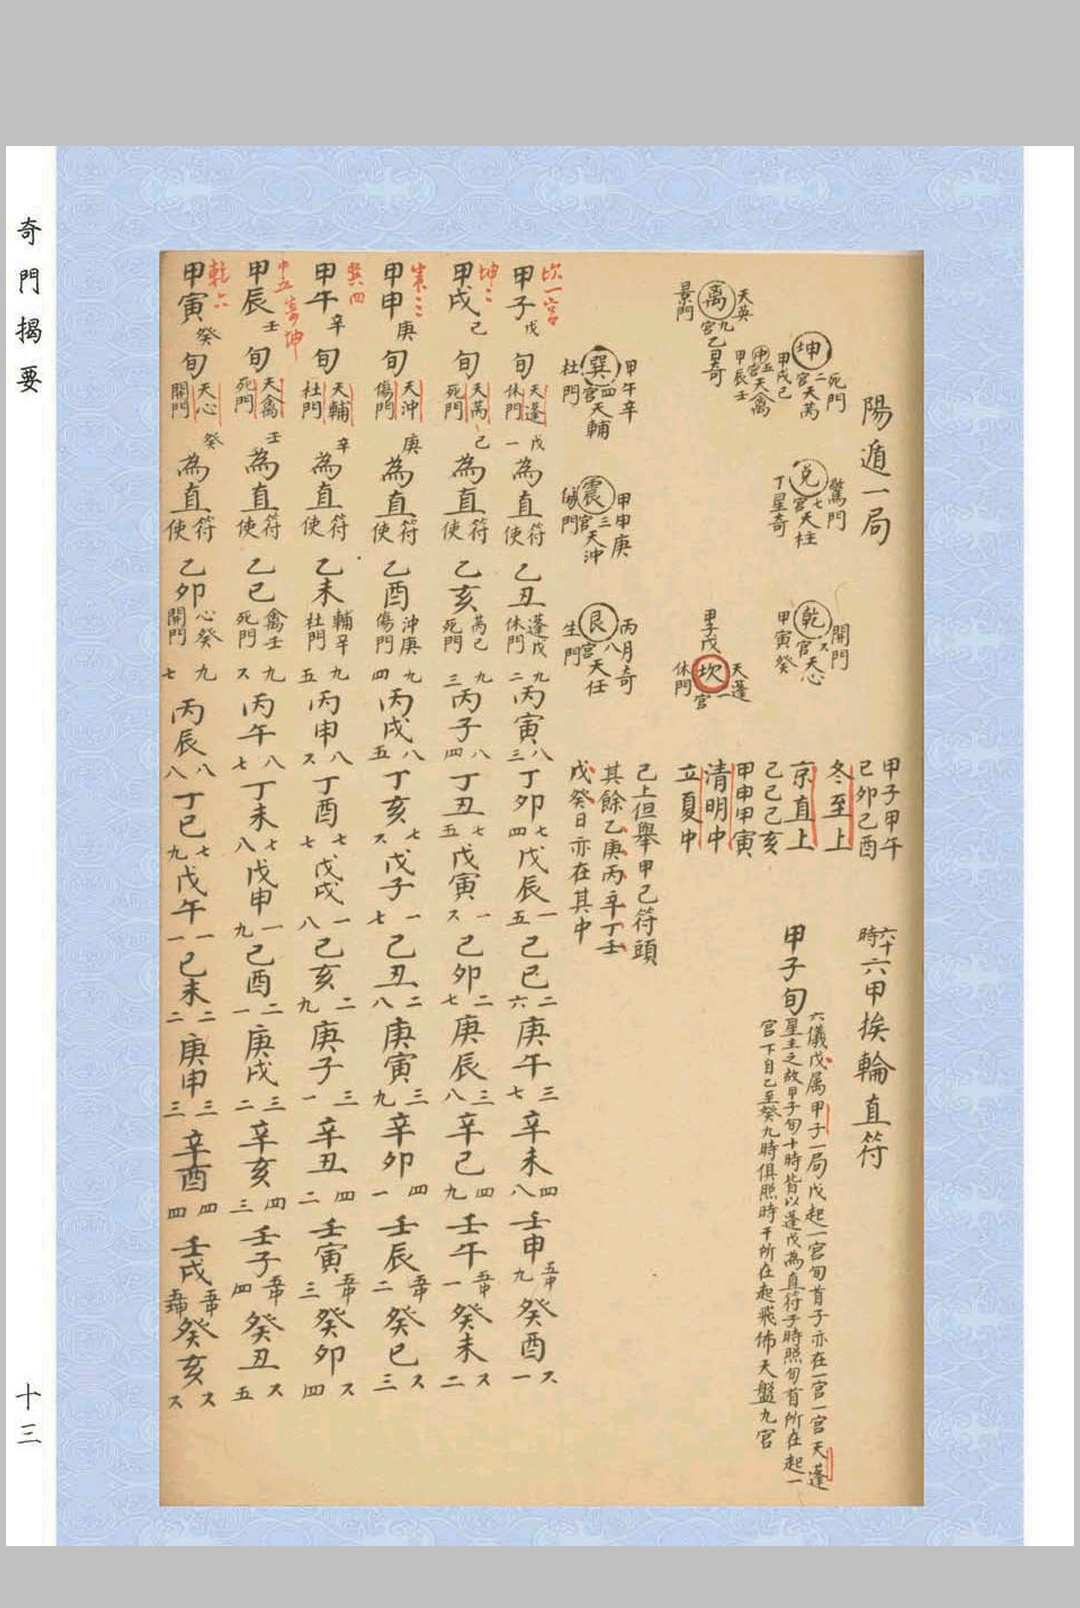 奇門揭要
十三
陽遁一局
離 九宮 天英 景門 乙日奇
坤 二宮 天芮 死門 甲戌己
中五宮 天禽 甲辰壬
兌 七宮 天柱 驚門 丁星奇
乾 六宮 天心 開門 甲寅癸
巽 四宮 天輔 杜門 甲午辛
震 三宮 天沖 傷門 甲申庚
艮 八宮 天任 生門 丙月奇
坎 一宮 天蓬 休門 甲子戊
甲子甲午
己卯己酉
冬至上
京直上
己巳己亥
甲申甲寅
清明中
立夏中
己上但舉甲己符頭
其餘乙庚丙辛丁壬
戊癸日亦在其中
六十時六甲挨輪直符
甲子旬
六儀戊属甲子一局戊起一宮旬首子亦在一宮一宮天蓬
星主之故甲子旬十時皆以蓬戊為直符子時照旬首所在起一
宮下自乙至癸九時俱照時干所在起飛佈天盤九宮
坎一宮
甲子戊旬 天蓬休門 戊一 為直符使 乙丑 蓬戊休門 九二 丙寅 八三 丁卯 七四 戊辰 一五 己巳 二六 庚午 三七 辛未 四八 壬申 五中九 癸酉 六一
坤二
甲戌己旬 天芮死門 己二 為直符使 乙亥 芮己死門 九三 丙子 八四 丁丑 七五 戊寅 一六 己卯 二七 庚辰 三八 辛巳 四九 壬午 五中一 癸未 六二
震三
甲申庚旬 天沖傷門 庚 為直符使 乙酉 沖庚傷門 九四 丙戌 八五 丁亥 七六 戊子 一七 己丑 二八 庚寅 三九 辛卯 四一 壬辰 五中二 癸巳 六三
巽四
甲午辛旬 天輔杜門 辛 為直符使 乙未 輔辛杜門 九五 丙申 八六 丁酉 七七 戊戌 一八 己亥 二九 庚子 三一 辛丑 四二 壬寅 五中三 癸卯 六四
中五寄坤
甲辰壬旬 天禽死門 壬 為直符使 乙巳 禽壬死門 九六 丙午 八七 丁未 七八 戊申 一九 己酉 二一 庚戌 三二 辛亥 四三 壬子 五中四 癸丑 六五
乾六
甲寅癸旬 天心開門 癸 為直符使 乙卯 心癸開門 九七 丙辰 八八 丁巳 七九 戊午 一一 己未 二二 庚申 三三 辛酉 四四 壬戌 五中五中 癸亥 六六